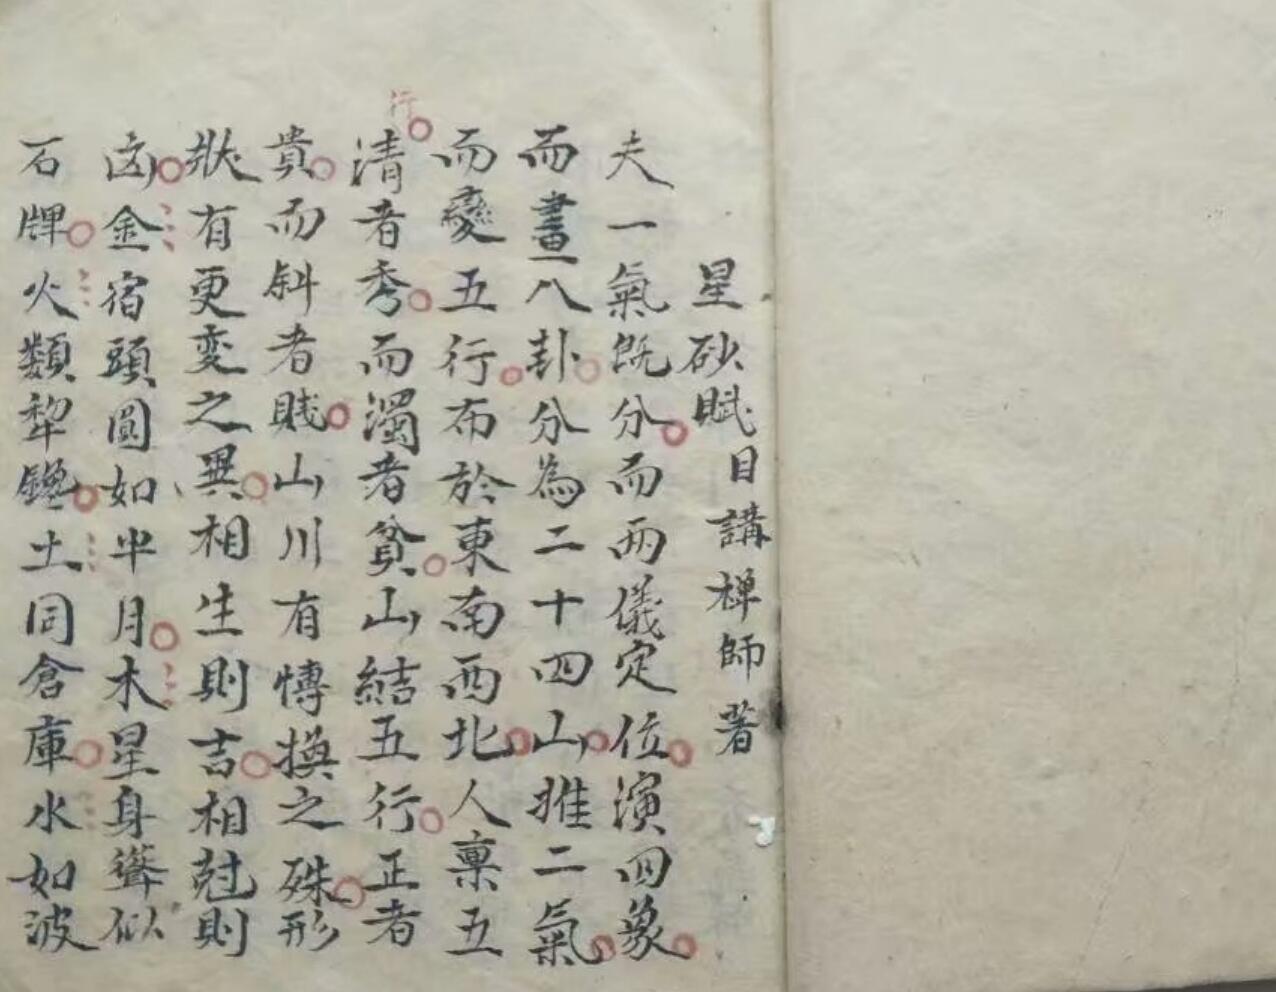 星砂賦目講禅師著
夫一氣既分而兩儀定位演四象
而畫八卦分為二十四山推二氣
而變五行布於東南西北人稟五
行
清者秀而濁者貧山結五行正者
貴而斜者賤山川有慱換之殊形
狀有更变之異相生則吉相尅則
凶金宿頭圓如半月木星身聳似
石牌火類犂鑱土同倉庫水如波